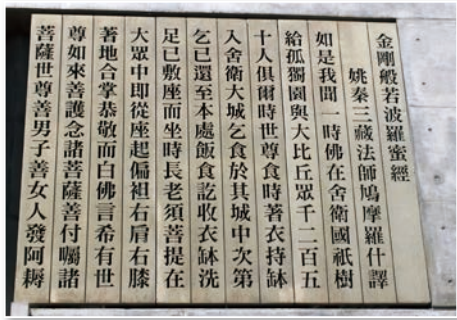 金剛般若波羅蜜經
姚秦三藏法師鳩摩羅什譯
如是我聞一時佛在舍衛國祇樹
給孤獨園與大比丘眾千二百五
十人俱爾時世尊食時著衣持缽
入舍衛大城乞食於其城中次第
乞已還至本處飯食訖收衣缽洗
足已敷座而坐時長老須菩提在
大眾中即從座起偏袒右肩右膝
著地合掌恭敬而白佛言希有世
尊如來善護念諸菩薩善付囑諸
菩薩世尊善男子善女人發阿耨